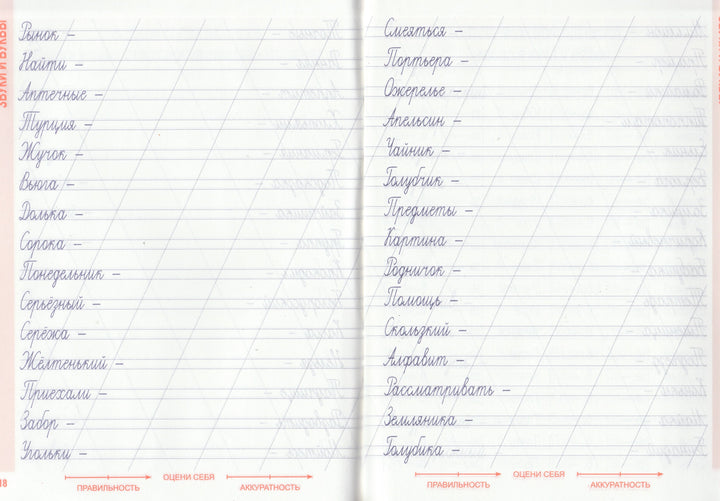 ЗВУКИ И БУКВЫ
Рынок –
Найти –
Аптечные –
Турция –
Жучок –
Вьюга –
Долька –
Сорока –
Понедельник –
Серьёзный –
Серёжа –
Жёлтенький –
Приехали –
Забор –
Угольки –
18
ПРАВИЛЬНОСТЬ
ОЦЕНИ СЕБЯ
АККУРАТНОСТЬ
Смеяться –
Портьера –
Ожерелье –
Апельсин –
Чайник –
Голубчик –
Предметы –
Картина –
Родничок –
Помощь –
Скользкий –
Алфавит –
Рассматривать –
Земляника –
Голубика –
ПРАВИЛЬНОСТЬ
ОЦЕНИ СЕБЯ
АККУРАТНОСТЬ